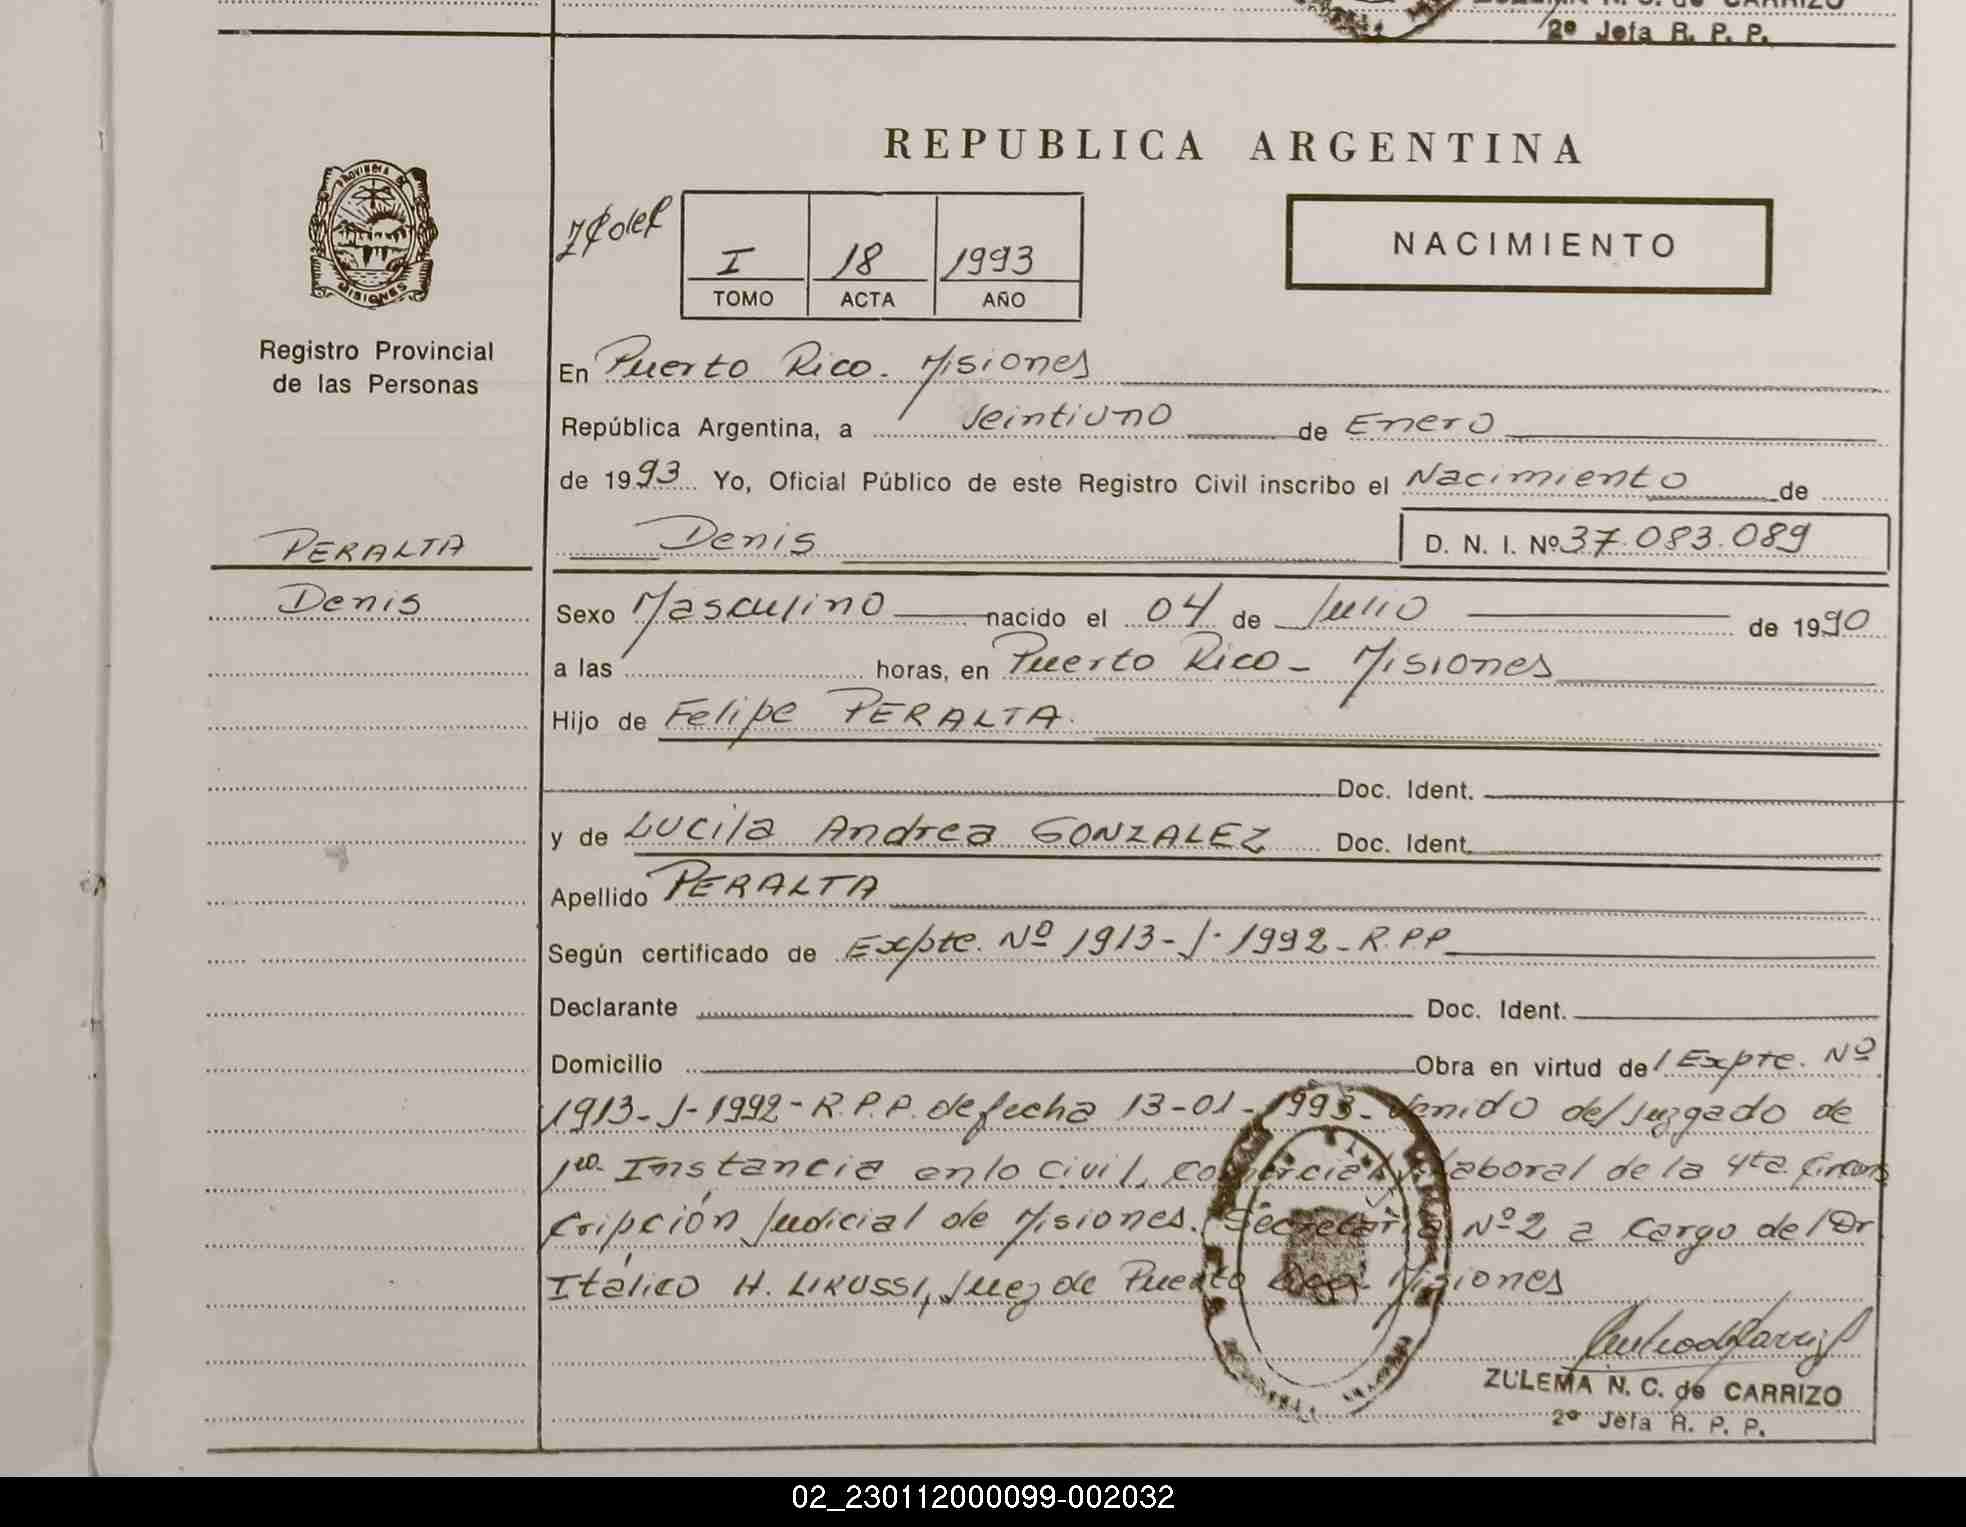 ZULEMA N. C. de CARRIZO
2º Jefa R. P. P.
REPUBLICA ARGENTINA
PROVINCIA DE
MISIONES
I 18 1993
TOMO ACTA AÑO
NACIMIENTO
Registro Provincial
de las Personas
En Puerto Rico. Misiones
República Argentina, a Veintiuno de Enero
de 1993 Yo, Oficial Público de este Registro Civil inscribo el Nacimiento de
PERALTA
Denis D. N. I. Nº 37.083.089
Denis
Sexo Masculino nacido el 04 de Julio de 1990
a las horas, en Puerto Rico - Misiones
Hijo de Felipe PERALTA.
Doc. Ident.
y de Lucila Andrea GONZALEZ Doc. Ident.
Apellido PERALTA
Según certificado de Expte. Nº 1913-J-1992-R.P.P
Declarante Doc. Ident.
Domicilio Obra en virtud del Expte. Nº
1913-J-1992-R.P.P. de fecha 13-01-1993- Venido del Juzgado de
1ra. Instancia en lo Civil, Comercial y Laboral de la 4ta. Circuns
cripción Judicial de Misiones. Secretaría Nº 2 a cargo del Dr
Itálico H. LIRUSSI, Juez de Puerto Rico- Misiones
ZULEMA N. C. de CARRIZO
2º Jefa R. P. P.
02_230112000099-002032